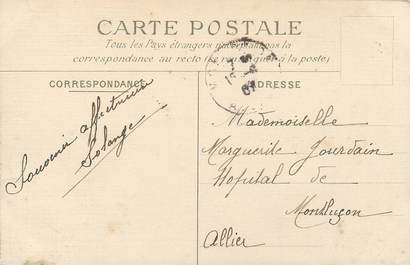 CARTE POSTALE
Tous les Pays étrangers n'acceptent pas la
correspondance au recto (se renseigner à la poste)
CORRESPONDANCE
ADRESSE
Souvenir affectueux
Solange
Mademoiselle
Marguerite Jourdain
Hopital de
Montluçon
Allier